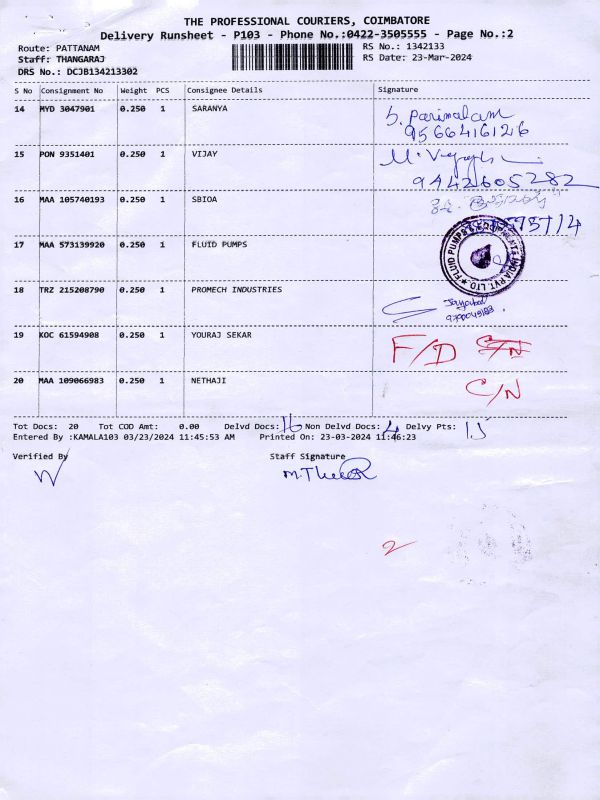 THE PROFESSIONAL COURIERS, COIMBATORE
Delivery Runsheet - P103 - Phone No.:0422-3505555 - Page No.:2
Route: PATTANAM
RS No.: 1342133
Staff: THANGARAJ
RS Date: 23-Mar-2024
DRS No.: DCJB134213302
S No Consignment No Weight PCS Consignee Details Signature
14 MYD 3047901 0.250 1 SARANYA S. Parimalam
9566416126
15 PON 9351401 0.250 1 VIJAY
9442605282
16 MAA 105740193 0.250 1 SBIOA
17 MAA 573139920 0.250 1 FLUID PUMPS FLUID PUMPS & EQUIPMENTS INDIA PVT. LTD
18 TRZ 215208790 0.250 1 PROMECH INDUSTRIES
19 KOC 61594908 0.250 1 YOURAJ SEKAR F/D C/N
20 MAA 109066983 0.250 1 NETHAJI C/N
Tot Docs: 20 Tot COD Amt: 0.00 Delvd Docs: 16 Non Delvd Docs: 4 Delvy Pts: 15
Entered By :KAMALA103 03/23/2024 11:45:53 AM Printed On: 23-03-2024 11:46:23
Verified By Staff Signature
2